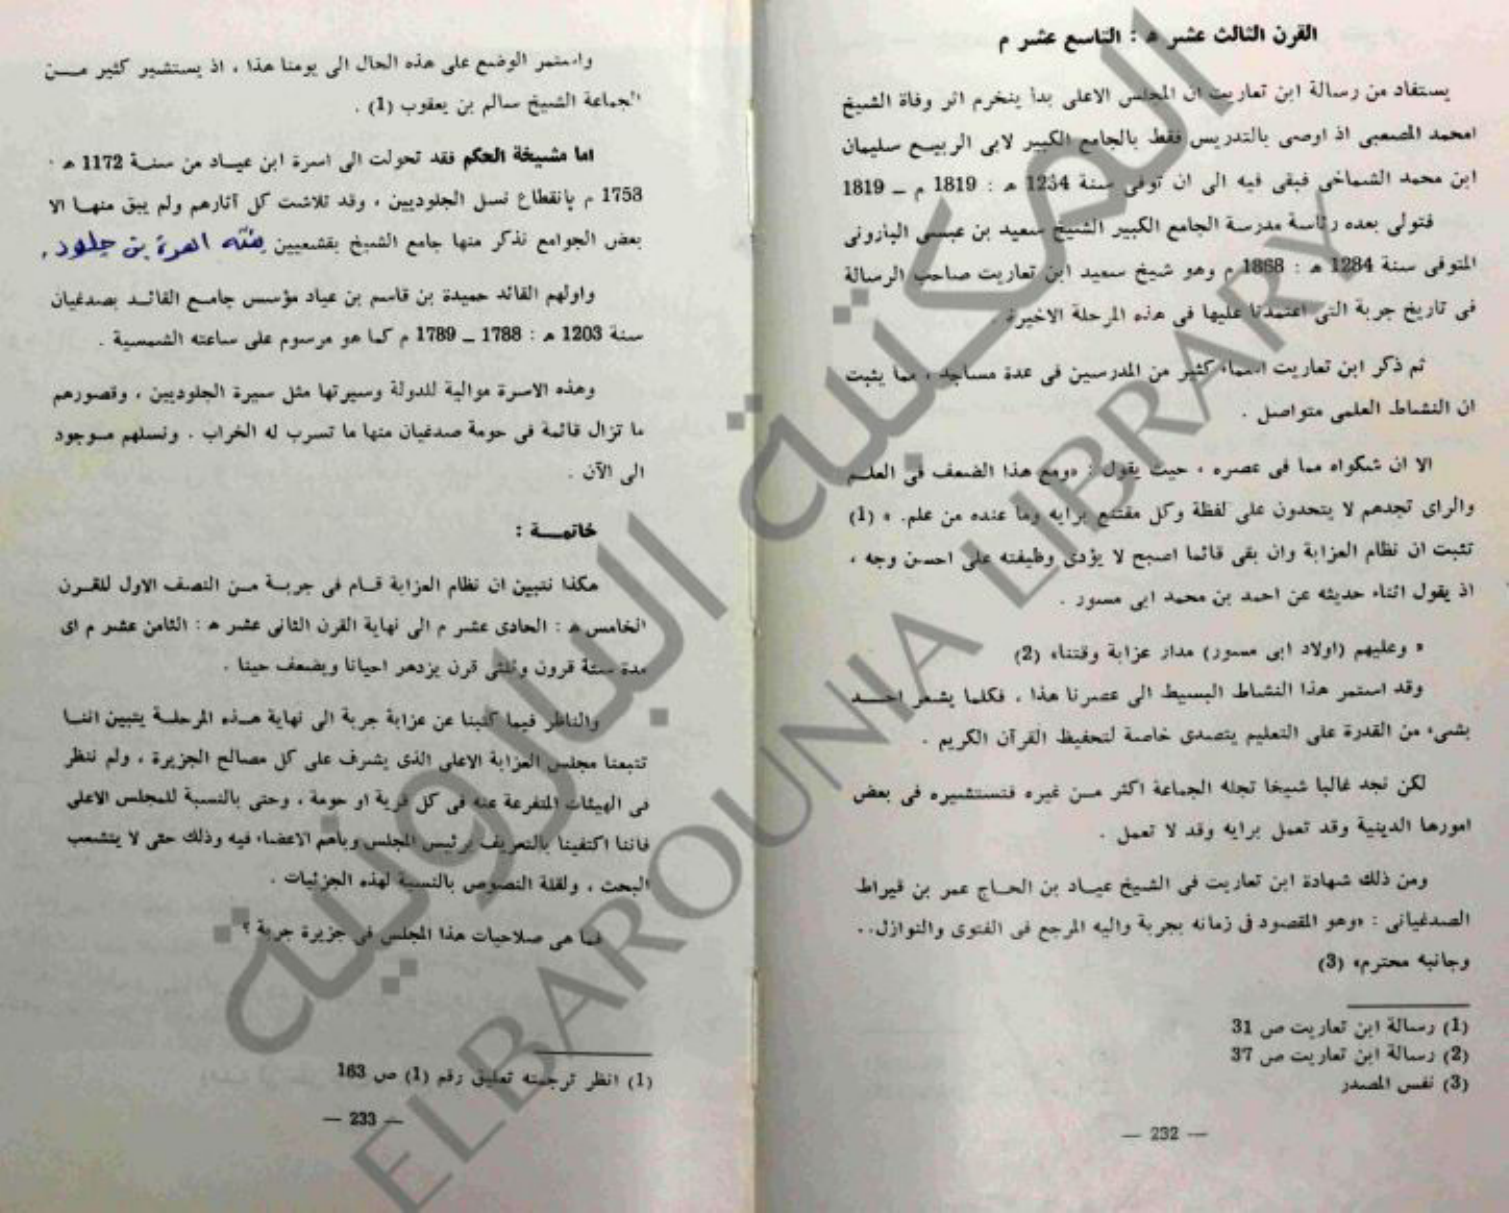 القرن الثالث عشر ه : التاسع عشر م
يستفاد من رسالة ابن تعاريت ان المجلس الاعلى بدأ ينخرم اثر وفاة الشيخ
امحمد المصعبى اذ اوصى بالتدريس فقط بالجامع الكبير لابى الربيع سليمان
ابن محمد الشماخى فبقى فيه الى ان توفى سنة 1234 ه : 1819 م ــ 1819
فتولى بعده رئاسة مدرسة الجامع الكبير الشيخ سعيد بن عيسى البارونى
المتوفى سنة 1284 ه : 1868 م وهو شيخ سعيد ابن تعاريت صاحب الرسالة
فى تاريخ جربة التى اعتمدنا عليها فى هذه المرحلة الاخيرة
ثم ذكر ابن تعاريت اسماء كثير من المدرسين فى عدة مساجد ، مما يثبت
ان النشاط العلمى متواصل .
الا ان شكواه مما فى عصره ، حيث يقول : «ومع هذا الضعف فى العلم
والراى تجدهم لا يتحدون على لفظة وكل مقتنع برايه وما عنده من علم. » (1)
تثبت ان نظام العزابة وان بقى قائما اصبح لا يؤدى وظيفته على احسن وجه ،
اذ يقول اثناء حديثه عن احمد بن محمد ابى مسور .
« وعليهم (اولاد ابى مسور) مدار عزابة وقتنا» (2)
وقد استمر هذا النشاط البسيط الى عصرنا هذا ، فكلما يشعر احد
بشىء من القدرة على التعليم يتصدى خاصة لتحفيظ القرآن الكريم .
لكن نجد غالبا شيخا تجله الجماعة اكثر من غيره فتستشيره فى بعض
امورها الدينية وقد تعمل برايه وقد لا تعمل .
ومن ذلك شهادة ابن تعاريت فى الشيخ عياد بن الحاج عمر بن قيراط
الصدغيانى : «وهو المقصود فى زمانه بجربة واليه المرجع فى الفتوى والنوازل..
وجانبه محترم» (3)
(1) رسالة ابن تعاريت ص 31
(2) رسالة ابن تعاريت ص 37
(3) نفس المصدر
— 232 —
واستمر الوضع على هذه الحال الى يومنا هذا ، اذ يستشير كثير من
الجماعة الشيخ سالم بن يعقوب (1) .
اما مشيخة الحكم فقد تحولت الى اسرة ابن عياد من سنة 1172 ه .
1758 م بانقطاع نسل الجلوديين ، وقد تلاشت كل آثارهم ولم يبق منها الا
بعض الجوامع نذكر منها جامع الشيخ بقشعيين بن جلود .
واولهم القائد حميدة بن قاسم بن عياد مؤسس جامع القائد بصدغيان
سنة 1203 ه : 1788 ــ 1789 م كما هو مرسوم على ساعته الشمسية .
وهذه الاسرة موالية للدولة وسيرتها مثل سيرة الجلوديين ، وقصورهم
ما تزال قائمة فى حومة صدغيان منها ما تسرب له الخراب . ونسلهم موجود
الى الآن .
خاتمة :
هكذا نتبين ان نظام العزابة قام فى جربة من النصف الاول للقرن
الخامس ه : الحادى عشر م الى نهاية القرن الثانى عشر ه : الثامن عشر م اى
مدة ستة قرون وثلثى قرن يزدهر احيانا ويضعف حينا .
والناظر فيما كتبنا عن عزابة جربة الى نهاية هذه المرحلة يتبين اننا
تتبعنا مجلس العزابة الاعلى الذى يشرف على كل مصالح الجزيرة ، ولم ننظر
فى الهيئات المتفرعة عنه فى كل قرية او حومة ، وحتى بالنسبة للمجلس الاعلى
فاننا اكتفينا بالتعريف برئيس المجلس وباهم الاعضاء فيه وذلك حتى لا يتشعب
البحث ، ولقلة النصوص بالنسبة لهذه الجزئيات .
فما هى صلاحيات هذا المجلس فى جزيرة جربة ؟
(1) انظر ترجمته تعليق رقم (1) ص 163
— 233 —
المكتبة البارونية
ELBAROUNIA LIBRARY